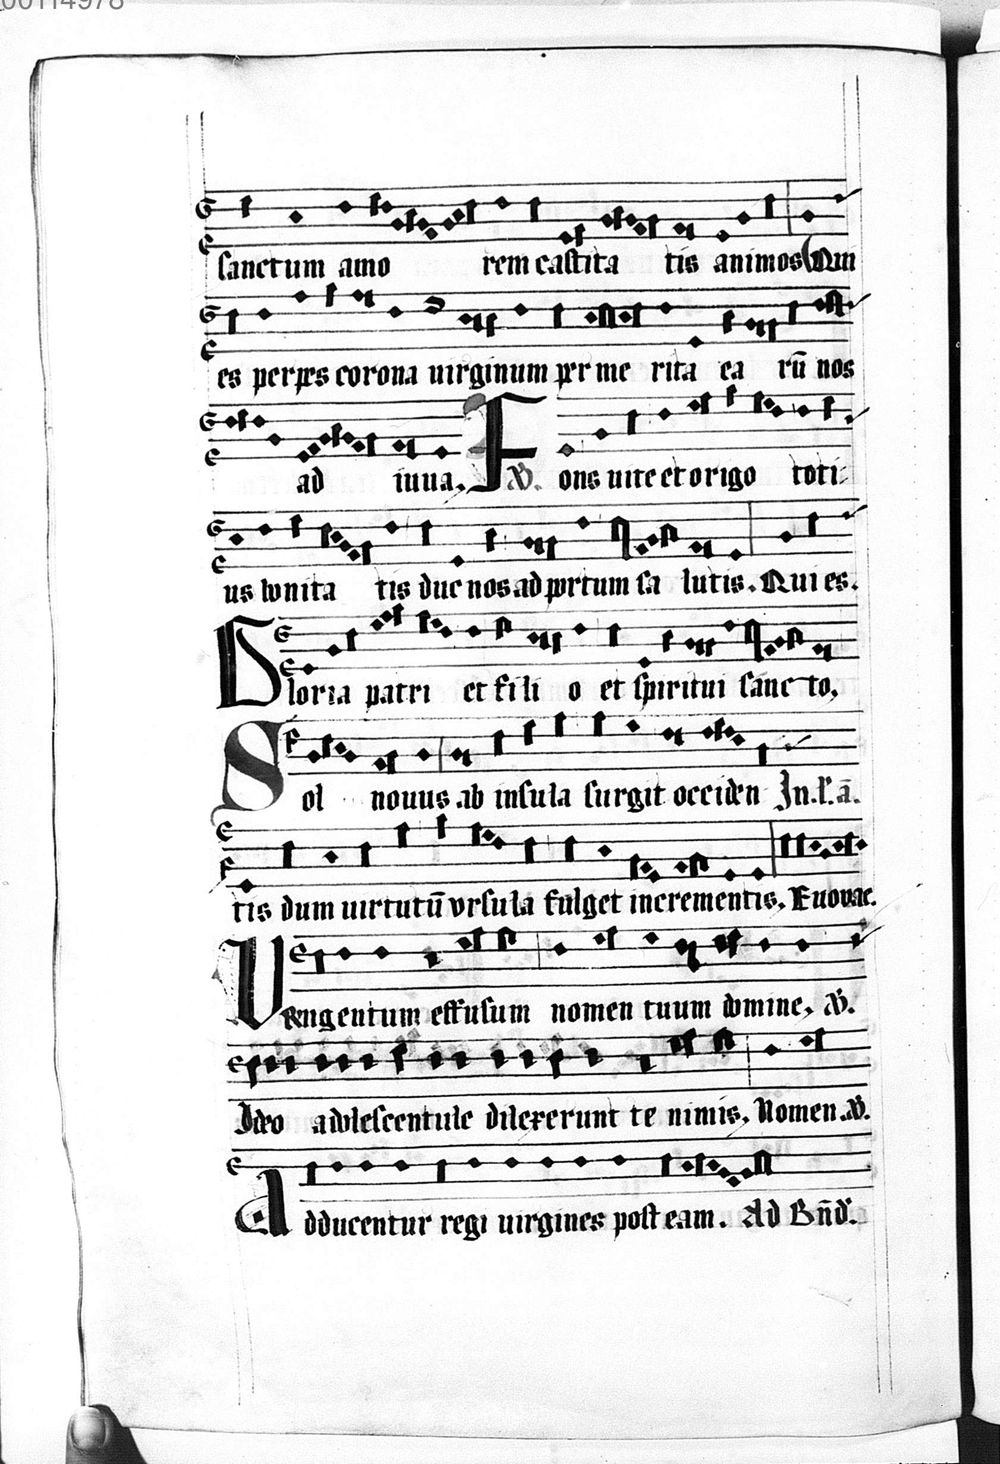 00114978
sanctum amo rem castita tis animos Qui
es perpes corona uirginum per me rita ea rū nos
ad iuua. V. Fons uite et origo toti
us bonita tis duc nos ad portum sa lutis. Qui es.
Gloria patri et fili o et spiritui sanc to.
Sol nouus ab insula surgit occiden In.l.ā.
tis dum uirtutū vrsula fulget incrementis. Euouae.
Vnguentum effusum nomen tuum domine. V.
Ideo adolescentule dilexerunt te nimis. Nomen. V.
Adducentur regi uirgines post eam. Ad Bn̄d.